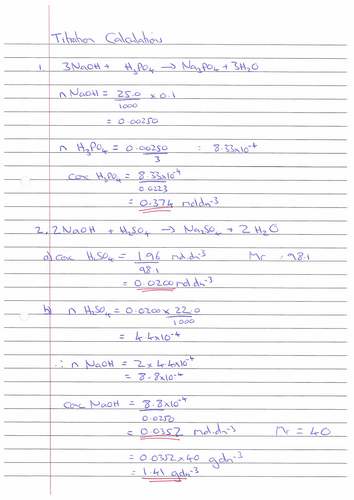 Titration Calculations
1. 3NaOH + H₃PO₄ → Na₃PO₄ + 3H₂O
n NaOH = 25.0/1000 × 0.1
= 0.00250
n H₃PO₄ = 0.00250/3 = 8.33×10⁻⁴
conc H₃PO₄ = 8.33×10⁻⁴/0.0223
= 0.374 mol dm⁻³
2. 2NaOH + H₂SO₄ → Na₂SO₄ + 2H₂O
a) conc H₂SO₄ = 1.96/98.1 mol dm⁻³ Mr = 98.1
= 0.0200 mol dm⁻³
b) n H₂SO₄ = 0.0200 × 22.0/1000
= 4.4×10⁻⁴
∴ n NaOH = 2 × 4.4×10⁻⁴
= 8.8×10⁻⁴
conc NaOH = 8.8×10⁻⁴/0.0250
= 0.0352 mol dm⁻³ Mr = 40
= 0.0352×40 gdm⁻³
= 1.41 gdm⁻³